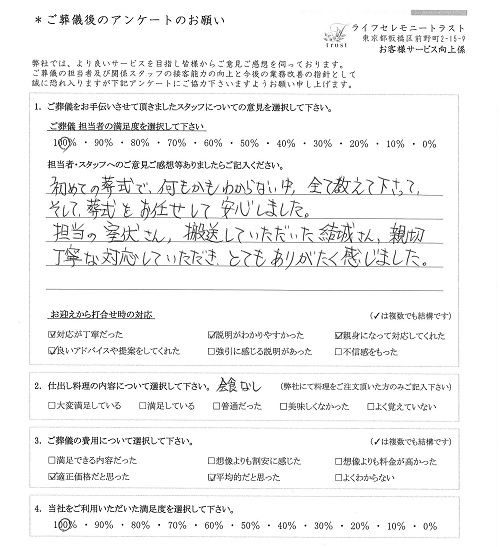 ＊ご葬儀後のアンケートのお願い
trust
ライフセレモニートラスト
東京都板橋区前野町2-15-9
お客様サービス向上係
弊社では、より良いサービスを目指し皆様からご意見ご感想を伺っております。
ご葬儀の担当者及び関係スタッフの接客能力の向上と今後の業務改善の指針として
誠に恐れ入りますが下記アンケートにご協力下さいますようお願い申し上げます。
1. ご葬儀をお手伝いさせて頂きましたスタッフについての意見を選択して下さい。
ご葬儀 担当者の満足度を選択して下さい
100% ・ 90% ・ 80% ・ 70% ・ 60% ・ 50% ・ 40% ・ 30% ・ 20% ・ 10% ・ 0%
担当者・スタッフへのご意見ご感想等ありましたらご記入ください。
初めての葬式で、何もかもわからない中、全て教えて下さって、
そして葬式をお任せして安心しました。
担当の室伏さん、搬送していただいた結城さん、親切
丁寧な対応していただき、とてもありがたく感じました。
お迎えから打合せ時の対応 (✓は複数でも結構です)
☑対応が丁寧だった ☑説明がわかりやすかった ☑親身になって対応してくれた
☑良いアドバイスや提案をしてくれた □強引に感じる説明があった □不信感をもった
2. 仕出し料理の内容について選択して下さい。 会食なし (弊社にて料理をご注文頂いた方のみご記入下さい)
□大変満足している □満足している □普通だった □美味しくなかった □よく覚えていない
3. ご葬儀の費用について選択して下さい。 (✓は複数でも結構です)
□満足できる内容だった □想像よりも割安に感じた □想像よりも料金が高かった
☑適正価格だと思った ☑平均的だと思った □よくわからない
4. 当社をご利用いただいた満足度を選択して下さい。
100% ・ 90% ・ 80% ・ 70% ・ 60% ・ 50% ・ 40% ・ 30% ・ 20% ・ 10% ・ 0%